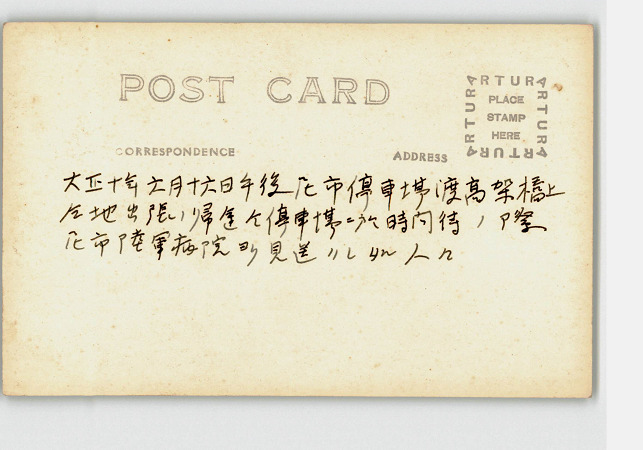 POST CARD
ARTURA
ARTURA
PLACE
STAMP
HERE
ARTURA
ARTURA
CORRESPONDENCE
ADDRESS
大正十年六月十六日午後尼市停車場渡高架橋上
仝地出張ノ帰途仝停車場ニ於時間待ノ際
尼市陸軍病院ヨリ見送ラレシ人々